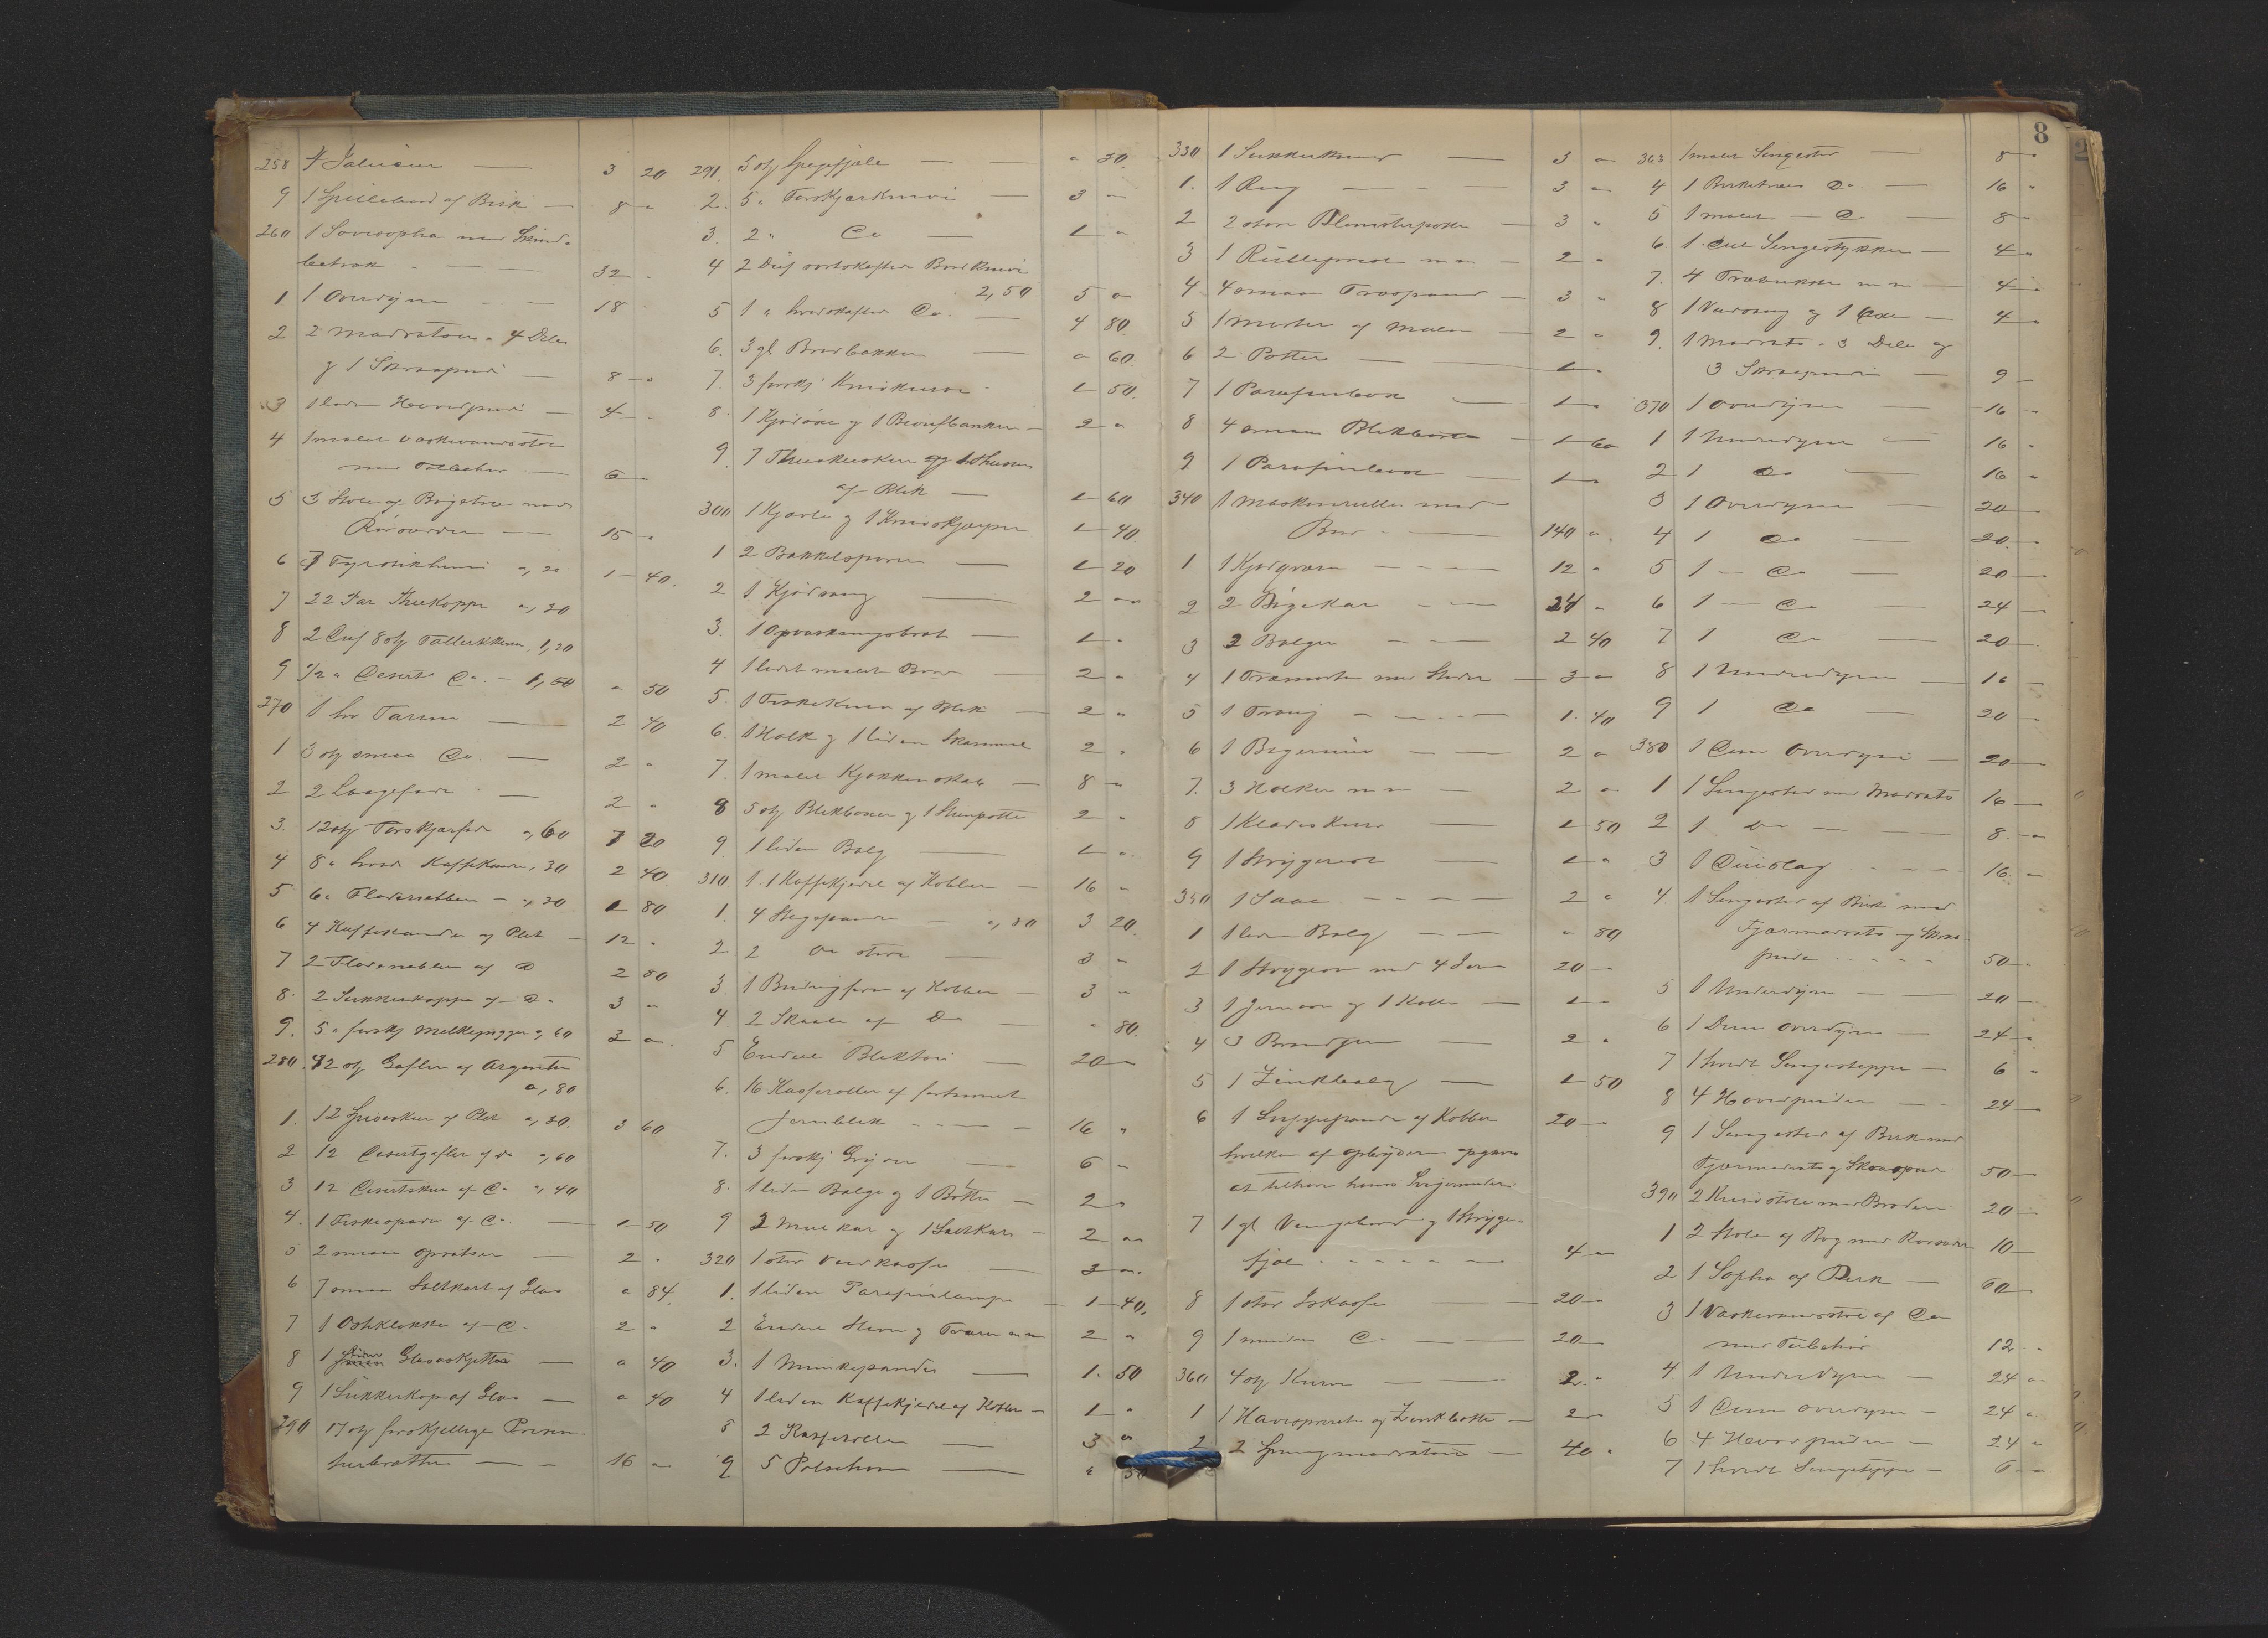 258 4 3 20
9 1 Spillebord af Birk — 8 "
260 1 Sovesopha med Skind-
betræk — 32 "
1 1 Overdyne — 18 "
2 2 Madratser a 4 Dele
og 1 Skraapude — 8 "
3 1 liden Hovedpude — 4 "
4 1 malet Vaskevandsstol
med Tilbehør — 6 "
5 3 Stole af Bøgetræ med
15 "
6 7 Fyrstikhuse a, 20 1 40
7 22 Par Theekopper a, 30
8 2 Dus 8 stk Tallerkkener 1,20
9 1/2 " Desert Do. – 1,50 " 50
270 1 hv Tarin — 2 40
1 3 stk smaa Do — 2 "
2 2 Laagefade — 2 "
3. 12 stk Forskjærfade a, 60 7 20
4 8 " hvide Kaffekander, 30 2 40
5 6 " Flødenebber – a, 30 1 80
6 4 Kaffekander af Plet — 12 "
7 2 Flødenebber af D 2 80
8. 2 Sukkerkopper af D. 3 "
9. 5 " forskj Melkemugger a, 60 3 "
280 12 stk Gafler af Argenter
a, 80
1. 12 Spiseskeer af Plet a, 30. 3 60
2 12 Desertgafler af do a, 60
3 12 Desertskeer af Do a, 40
4. 1 Fiskespade af Do. — 1 50
5 2 smaa Opsatser — 2 "
6 7 smaa Saltkar af Glas " 84.
7 1 Osteklokke af D. 2 "
8 1 liden Glasaskjette — " 40
9 1 Sukkerkop af Glas — " 40
290 17 stk forskjellige
16 "
291. 5 stk Spegefjæle — " 50.
2. 5 " Forskjærknive — 3 "
3. 2 " Do — 1 "
4 2 Dus sortskaftede Bordknive
2,50 5 "
5 1 " hvidskaftede Do. — 4 80.
6. 3 gl Bordbakker — " 60.
7. 3 forskj Knivkurve 1 50.
8. 1 Kjødøxe og 1 Beufbanker — 2 "
9. 7 Theeskeer og
af Blik — 1 60
300 1 Kjævle og 1 Knivskjærper 1 40.
1 2 Bakkelsspore — 1 20
2 1 Kjødsaug — 2 "
3. 1 Opvaskningsbræt — 1 "
4 1 lidet malet Bord — 2 "
5. 1 Fiskekum af Blik — 2 "
6. 1 Holk og 1 liden Skammel 2 "
7. 1 malet Kjøkkenskab — 8 "
8 5 stk Blikbøsser og 1 Steenpotte 2 "
9 1 liden Balg — 1 "
310. 1 Kaffekjedel af Kobber — 16 "
1. 4 Stegepander — a, 80 3 20.
2. 2 Do store — 3 "
3 1 Budingform af Kobber — 3 "
4. 2 Skaale af Do — " 80.
5 Endeel Bliktøi — 20 "
6. 16 Kasseroller af fortinnet
Jernblik — 16 "
7. 3 forskj Gryder — 6 "
8. 1 liden Balge og 1 Bøtte — 2 "
9 2 Meelkar og 1 Saltkar — 2 "
320 1 stor Vedkasse — 3 "
1. 1 liden Parafinlampe — 1 40.
2 Endeel Steen og Træ 2 "
3. 1 Munkepande — 1. 50
4 1 liden Kaffekjedel af Kobber — 1 "
8 2 Kasseroller — 3 "
9 5 Pølsehorn — " 50
8
330 1 Sukkerkniv — 3 "
1. 1 Ring — 3 "
2 2 store Blomsterpotter — 3 "
3 1 Rullepresse m m — 2 "
4 4 smaa Træspand — 3 "
5 1 Morter af Malm — 2 "
6 2 Potter — 1 "
7 1 Parafinlampe — 1 "
8 4 smaa Blikbøsser — 1 60
9 1 — 1 "
340 1 Maskinrulle med
Bord — 140 "
1 1 Kjødgryde — 12 "
2 2 Bøgekar — 24 "
3 2 Balger — 2 40
4 1 Træmorter med Støder — 3 "
5 1 Traug — 1. 40
6 1 — 2 "
7. 3 Holker m m — 2 "
8 1 Klædeskurv — 1 50
9 1 — 1 "
350 1 — 2 "
1 1 liden Balg — " 80
2 1 Strygeovn med 4 Jern 20 "
3 1 Jernovn og 1 — 1 "
4 3 — 2 "
5 1 Zinkbalg — 1 50
6 1 Suppepande af Kobber 20 —
hvilken af opbyderen opgives
at tilhøre hans Svigermoder
7 1 gl Vengebord og 1 Stryge-
fjæl — 4 "
8 1 stor Iskasse — 20 "
9 1 mindre Do — 20 —
360 4 stk Kurve — 2 "
1 1 Havesprøite og Zinkbøtte — 2 "
2 2 Springmadratser — 40 "
363 1 malet Sengested — 8 "
4 1 Birketræs Do. — 16 "
5 1 malet — D. — 8 —
6. 1 Deel Sengestykker — 4 "
7. 4 Træbukke m m — 4 —
8 1 Vedsaug og 1 Øxe — 4 "
9. 1 Madrats a 3 Dele og
3 Skraapuder — 9 —
370 1 Overdyne — 16 "
1 1 Underdyne — 16 "
2 1 Do — 16 "
3 1 Overdyne — 20 —
4 1 Do — 20. —
5 1 — D. — 20 —
6 1 — D. — 24 —
7 1 D. — 20 —
8 1 Underdyne — 16 —
9 1 Do — 20 —
380 1 Duun Overdyne — 20 —
1 1 Sengested med Madrats 16 —
2 1 Do — 8. "
3 1 — 16. "
4. 1 Sengested af Birk med
Fjærmadrats og Skraa-
pude — 50 "
5 1 Underdyne — 20 "
6 1 Duun Overdyne — 24 "
7 1 hvidt Sengeteppe — 6 "
8 4 Hovedpuder — 24 —
9 1 Sengested af Birk med
Fjærmadrats og Skraapude 50 —
390 2 Kurvstole med Broderi 20 —
1 2 Stole af Bøg med 10 —
2 1 Sopha af Birk — 60 —
3 1 Vaskevandsstol af Do
med Tilbehør 12 "
4. 1 Underdyne — 24 "
5 1 Duun Overdyne — 24 "
6 4 Hovedpuder — 24 "
7 1 hvidt Sengeteppe — 6 "